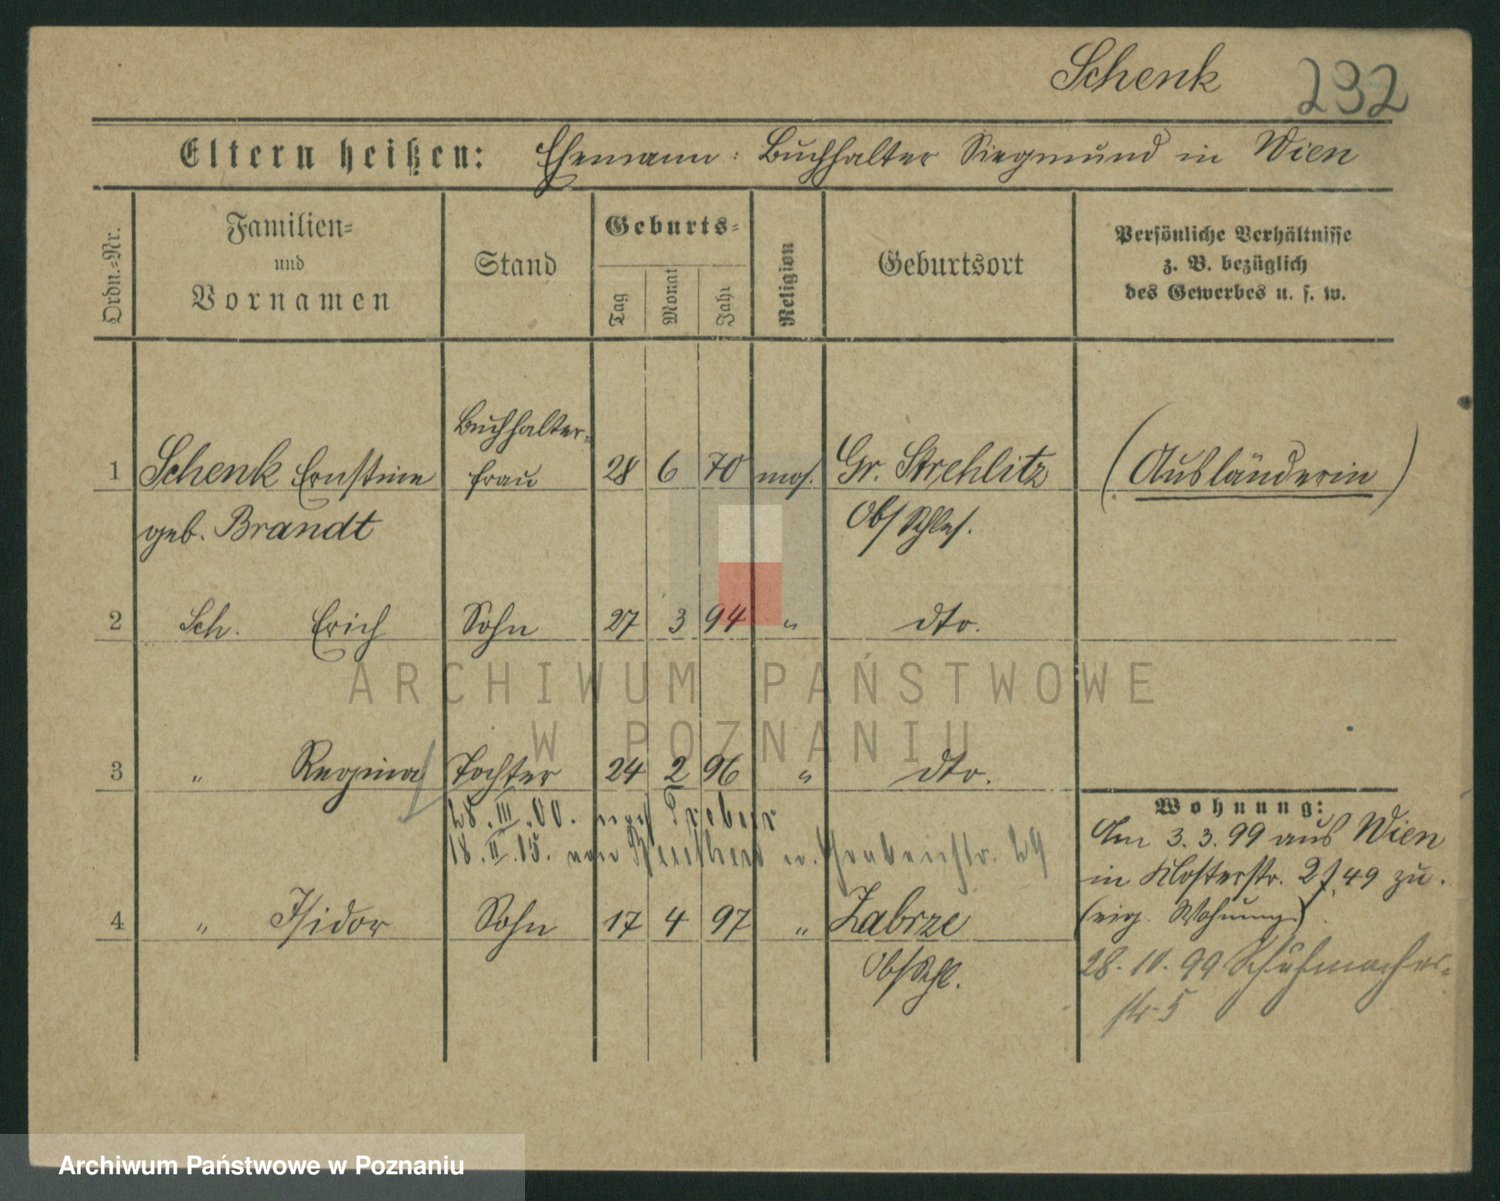 Schenk 232
Eltern heißen: Ehemann: Buchhalter Siegmund in Wien
Ordn.-Nr.
Familien-
und
Vornamen
Stand
Geburts-
Tag Monat Jahr
Religion
Geburtsort
Persönliche Verhältnisse
z. B. bezüglich
des Gewerbes u. s. w.
Buchhalter-
1 Schenk Ernstine frau 28 6 70 mos. Gr. Strehlitz (Ausländerin)
geb. Brandt Ob/Schles.
2 Sch. Erich Sohn 27 3 94 " dto.
ARCHIWUM PAŃSTWOWE
W POZNANIU
3 " Regina Tochter 24 2 96 " dto.
28. III. 00. nach
18. II. 15. von 29
Wohnung:
Am 3.3.99 aus Wien
in Klosterstr. 49 zu.
(eig. Wohnung).
4 " Isidor Sohn 17 4 97 " Zabrze
Ob/Schl.
28. 10. 99 Schuhmacher-
str 5
Archiwum Państwowe w Poznaniu